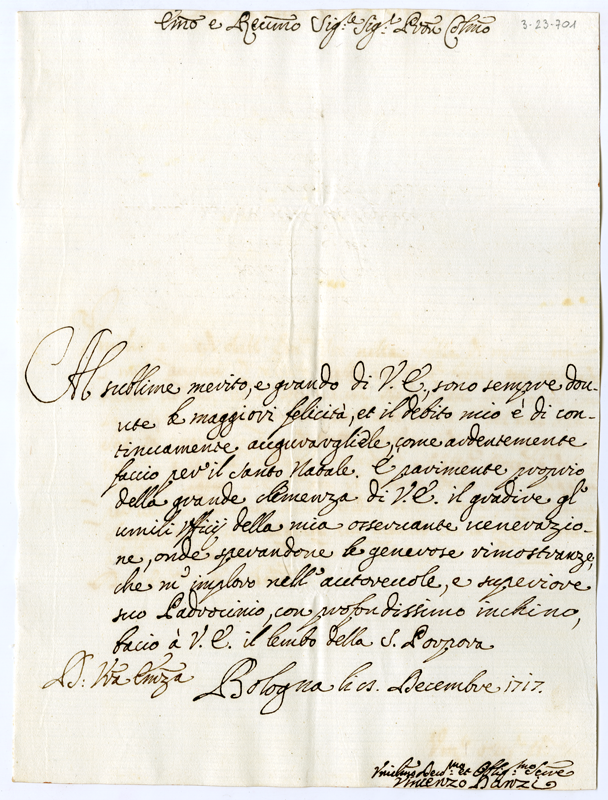 Emo e Reumo Sig.r Sig.r Pron Colmo
3-23-701
Al sublime merito, e grando di V. E., sono sempre dou-
ute le maggiori felicità, et il debito mio è di con-
tinuamente augurargliele, come ardentemente
faccio per il Santo Natale. È parimente proprio
della grande clemenza di V. E. il gradire gl'
umili Vfficij della mia osseruante uenerazio-
ne, onde sperandone le generose rimostranze,
che m'imploro nell' autoreuole, e superiore
suo Padrocinio, con profondissimo inchino,
bacio à V. E. il lembo della S. Porpora
D: Vra Emza
Bologna li 15. Decembre 1717.
Vmilmo Deu.mo et Obblig.mo Serure
Vincenzo